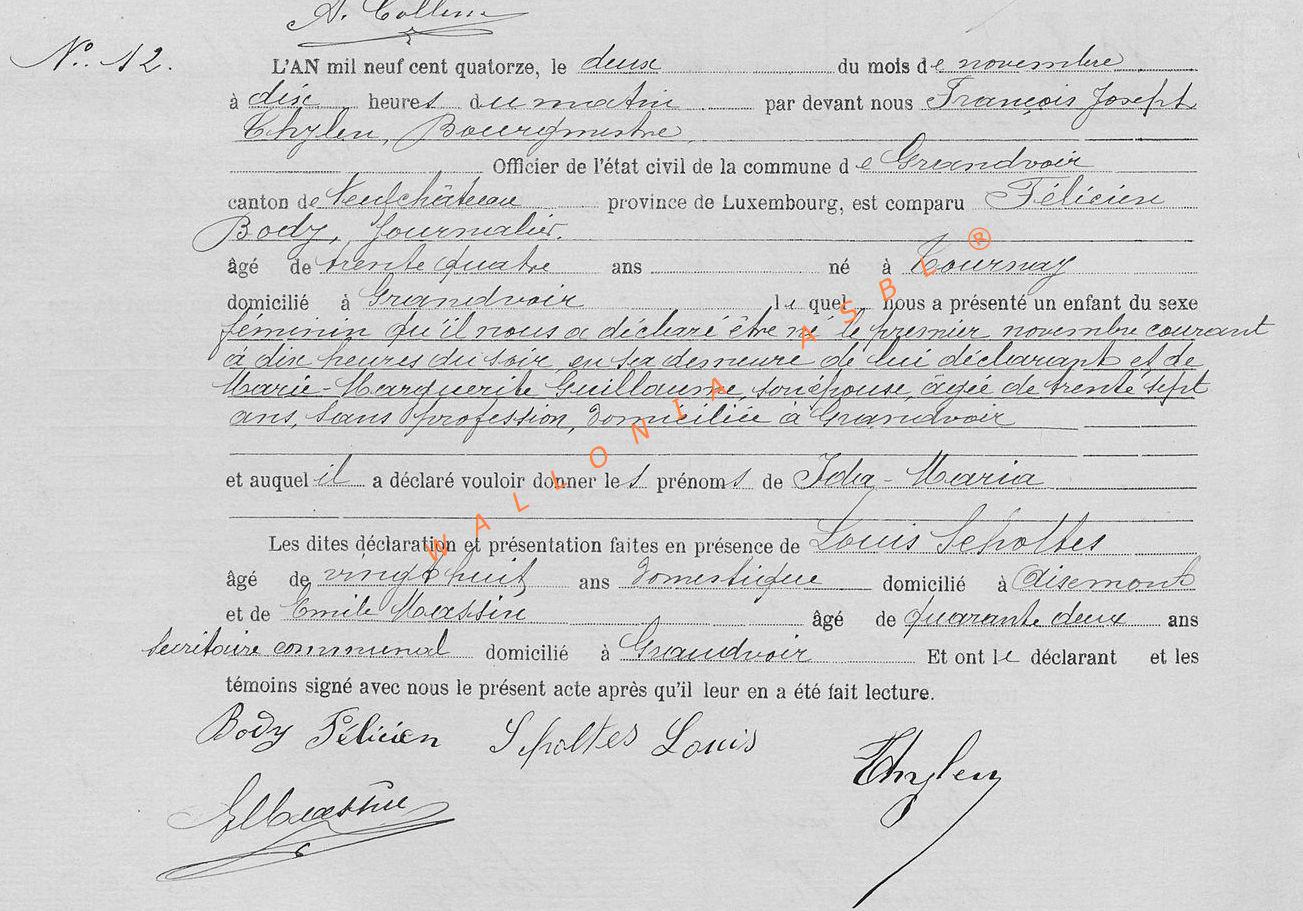 A. Collem
N° 12.
L'AN mil neuf cent quatorze, le deux du mois de novembre
à dix heures du matin par devant nous François Joseph
Thylen, Bourgmestre
Officier de l'état civil de la commune de Grandvoir
canton de Neufchâteau province de Luxembourg, est comparu Félicien
Body, Journalier.
âgé de trente quatre ans né à Tournay
domicilié à Grandvoir le quel nous a présenté un enfant du sexe
féminin qu'il nous a déclaré être né le premier novembre courant
à dix heures du soir, en sa demeure de lui déclarant et de
Marie-Marguerite Guillaume, son épouse, âgée de trente sept
ans, sans profession, domiciliée à Grandvoir
et auquel il a déclaré vouloir donner les prénoms de Ida-Maria
Les dites déclaration et présentation faites en présence de Louis Scholtes
âgé de vingt huit ans domestique domicilié à
et de Emile Massin âgé de quarante deux ans
secrétaire communal domicilié à Grandvoir Et ont le déclarant et les
témoins signé avec nous le présent acte après qu'il leur en a été fait lecture.
Body Félicien Scholtes Louis Thylen
EMassin
WALLONIA ASBL ®